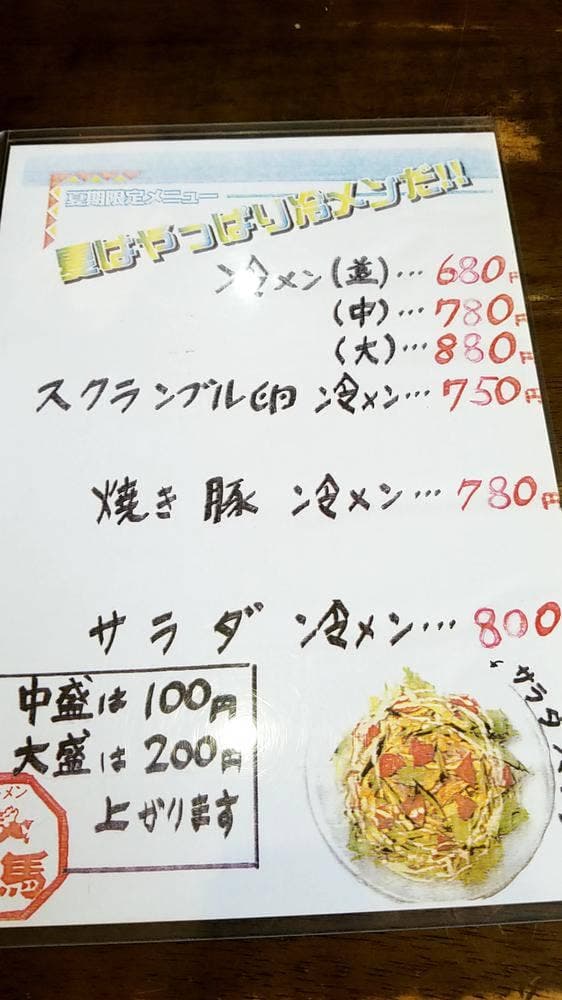 夏期限定メニュー
夏はやっぱり冷メンだ!!
冷メン(並)…680円
(中)…780円
(大)…880円
スクランブル卵 冷メン…750円
焼き豚 冷メン…780円
サラダ 冷メン…800
サラダ
中盛は100円
大盛は200円
上がります
メン
馬